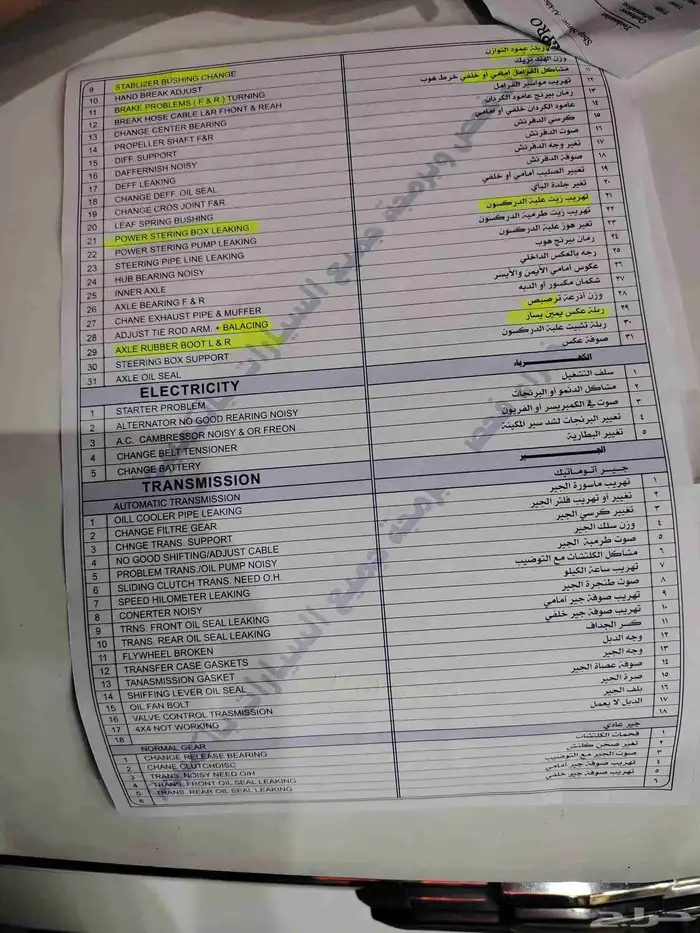 9 STABLIZER BUSHING CHANGE ربلة عمود التوازن
10 HAND BREAK ADJUST وزن الهند بريك
11 BRAKE PROBLEMS ( F & R ) TURNING مشاكل الفرامل أمامي أو خلفي خرط هوب
12 BREAK HOSE CABLE L&R FHONT & REAH تهريب مواسير الفرامل ١٢
13 CHANGE CENTER BEARING رمان بيرنج عامود الكردان ١٣
14 PROPELLER SHAFT F&R عامود الكردان خلفي أو أمامي ١٤
15 DIFF. SUPPORT كرسي الدفرنش ١٥
16 DAFFERNISH NOISY صوت الدفرنش ١٦
17 DEFF LEAKING تغير وجه الدفرنش ١٧
18 CHANGE DEFF. OIL SEAL صوفة الدفرنش ١٨
19 CHANGE CROS JOINT F&R. تغيير الصليب أمامي أو خلفي ١٩
20 LEAF SPRING BUSHING تغير جلدة الباي ٢٠
21 POWER STERING BOX LEAKING تهريب زيت علبة الدركسون ٢١
22 POWER STERING PUMP LEAKING تهريب زيت طرمبة الدركسون ٢٢
23 STEERING PIPE LINE LEAKING تغير هوز علبة الدركسون ٢٣
24 HUB BEARING NOISY رمان بيرنج هوب ٢٤
25 INNER AXLE رجه بالعكس الداخلي ٢٥
26 AXLE BEARING F & R عكوس أمامي الأيمن والأيسر ٢٦
27 CHANE EXHAUST PIPE & MUFFER شكمان مكسور أو الدبه ٢٧
28 ADJUST TIE ROD ARM. + BALACING وزن أذرعة ترصيص ٢٨
29 AXLE RUBBER BOOT L & R ربلة عكس يمين يسار ٢٩
30 STEERING BOX SUPPORT ربلة تثبيت علبة الدركسون ٣٠
31 AXLE OIL SEAL صوفة عكس ٣١
ELECTRICITY الكهرباء
1 STARTER PROBLEM سلف التشغيل ١
2 ALTERNATOR NO GOOD REARING NOISY مشاكل الدنمو أو البرنجات ٢
3 A.C. CAMBRESSOR NOISY & OR FREON صوت في الكمبريسر أو الفريون ٣
4 CHANGE BELT TENSIONER تغيير البرنجات لشد سير المكينة ٤
5 CHANGE BATTERY تغيير البطارية ٥
TRANSMISSION الجير
AUTOMATIC TRANSMISSION جير أتوماتيك
1 OILL COOLER PIPE LEAKING تهريب ماسورة الجير ١
2 CHANGE FILTRE GEAR تغيير أو تهريب فلتر الجير ٢
3 CHNGE TRANS. SUPPORT تغيير كرسي الجير ٣
4 NO GOOD SHIFTING/ADJUST CABLE وزن سلك الجير ٤
5 PROBLEM TRANS /OIL PUMP NOISY صوت طرمبة الجير ٥
6 SLIDING CLUTCH TRANS. NEED O.H. مشاكل الكلتشات مع التوضيب ٦
7 SPEED HILOMETER LEAKING تهريب ساعة الكيلو ٧
8 CONERTER NOISY صوت طنجرة الجير ٨
9 TRNS. FRONT OIL SEAL LEAKING تهريب صوفة جير امامي ٩
10 TRANS. REAR OIL SEAL LEAKING تهريب صوفة جير خلفي ١٠
11 FLYWHEEL BROKEN كسر الجداف ١١
12 TRANSFER CASE GASKETS وجه الدبل ١٢
13 TANASMISSION GASKET وجه الجير ١٣
14 SHIFFING LEVER OIL SEAL صوفة عصاة الجير ١٤
15 OIL FAN BOLT صرة الجير ١٥
16 VALVE CONTROL TRASMISSION بلف الجير ١٦
17 4X4 NOT WORKING الدبل لا يعمل ١٧
18 ١٨
NORMAL GEAR جير عادي
1 CHANGE RELEASE BEARING فحمات الكلتشات ١
2 CHANE CLUTCHDISC تغير صحن كلتش ٢
3 TRANS. NOISY NEED O/H صوت الجير مع التوضيب ٣
4 TRANS. FRONT OIL SEAL LEAKING تهريب صوفة جير أمامي ٤
5 TRANS. REAR OIL SEAL LEAKING تهريب صوفة جير خلفي ٥
6 ٦
حراج